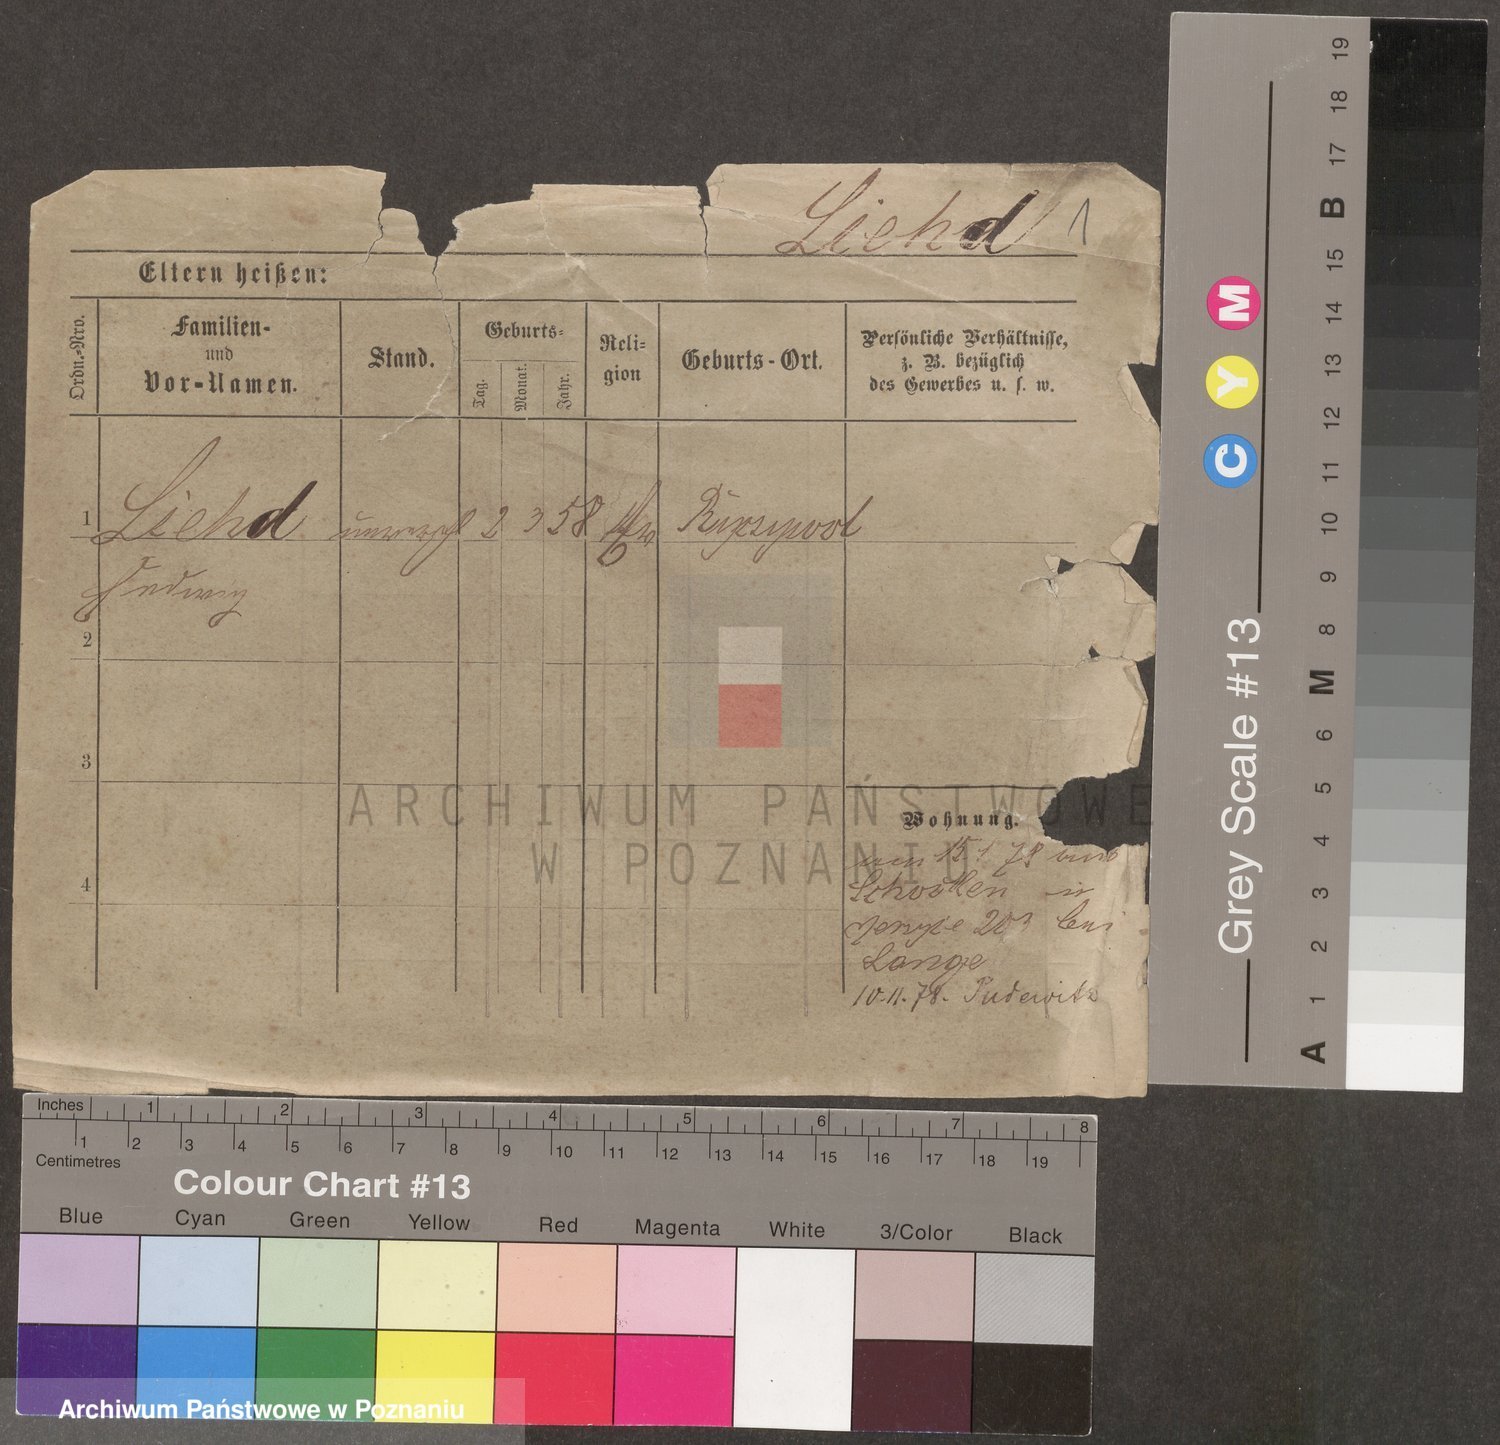 Liehd 1
Eltern heißen:
Ordn.-Nro.
Familien-
und
Vor-Namen.
Stand.
Geburts-
Tag. Monat. Jahr.
Reli-
gion
Geburts-Ort.
Persönliche Verhältnisse,
z. B. bezüglich
des Gewerbes u. s. w.
1 Liehd 2 3 58
Hedwig
2
3
4
Wohnung.
15 1 78
Schokken in
Jersyce 203 bei
Lange
10.11.78. Pudewitz
ARCHIWUM PAŃSTWOWE
W POZNANIU
Grey Scale #13
C Y M
A 1 2 3 4 5 6 M 8 9 10 11 12 13 14 15 B 17 18 19
Inches 1 2 3 4 5 6 7 8
Centimetres 1 2 3 4 5 6 7 8 9 10 11 12 13 14 15 16 17 18 19
Colour Chart #13
Blue Cyan Green Yellow Red Magenta White 3/Color Black
Archiwum Państwowe w Poznaniu